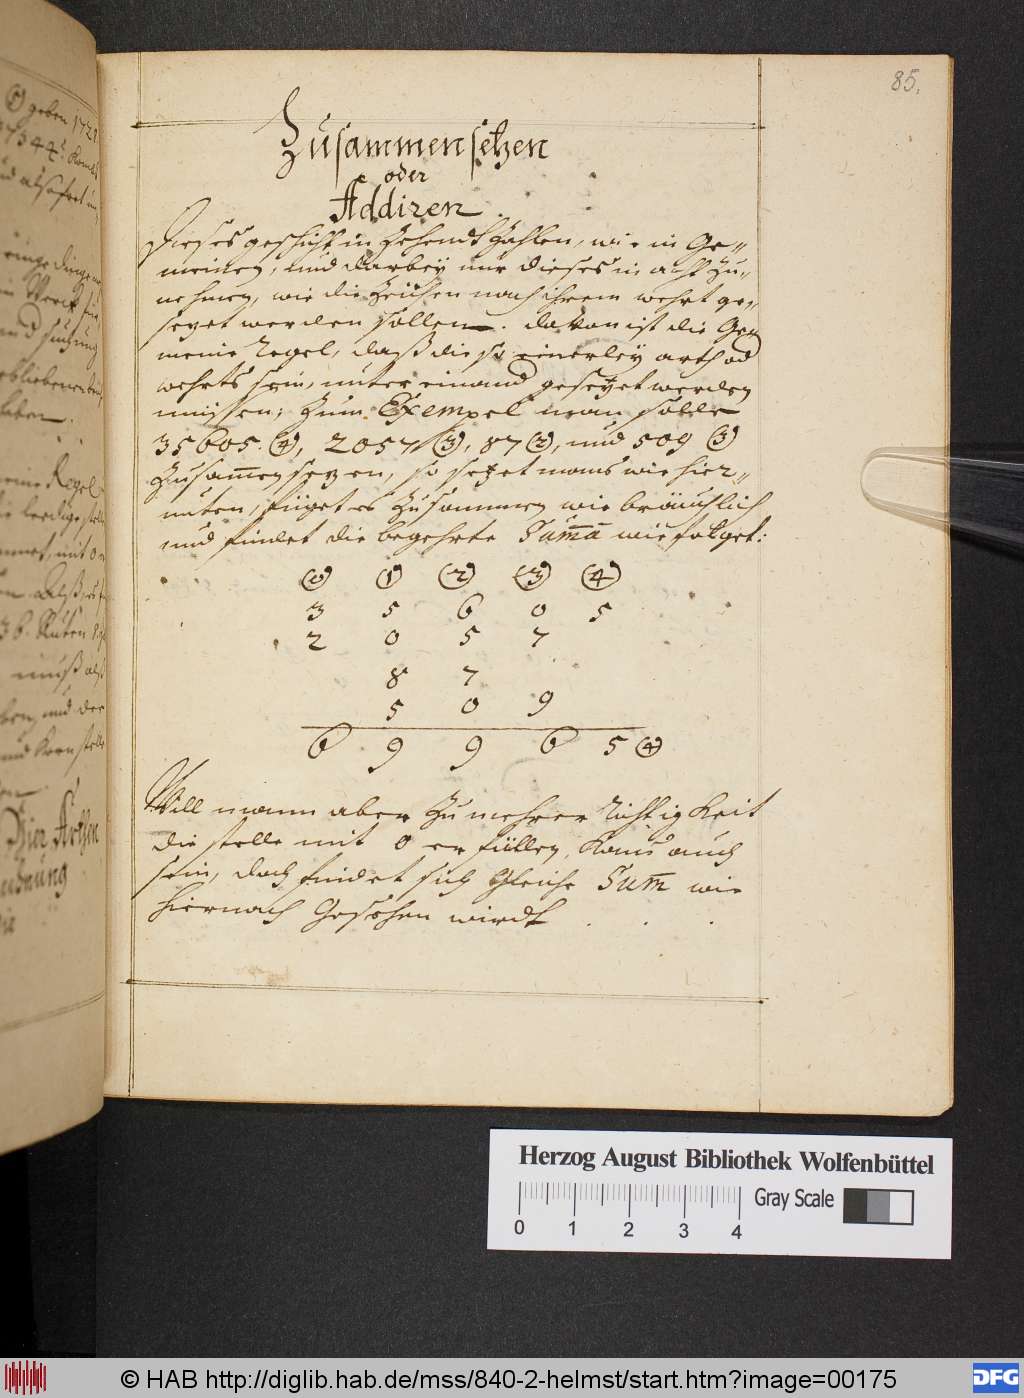 85.
Zusammensetzen
oder
Addiren
Dieses geschicht in Zehendt Zahlen, wie in Ge-,,
meinen, und darbey nur dieses in acht Zu,,
nehmen, wie die Zeichen nach ihrem wehrt ge,,
sezet werden sollen. davon ist die Ge
meine Regel, daß die so einerley arth od
wehrts sein, unter einand gesezet werden
müssen; Zum Exempel man solle
35605. ④, 2057 ③, 87 ②, und 509 ③
Zusamen sezen, so sezet mans wie hier-,,
unten, füget es Zusammen wie bräuchlich
und findet die begehrte Suma wie folget:
⓪ ① ② ③ ④
3 5 6 0 5
2 0 5 7
8 7
5 0 9
6 9 9 6 5 ④
Will mann aber Zu mehrer Richtigkeit
die stelle mit 0 erfüllen, kans auch
sein, doch findet sich gleiche Sum wie
hiernach Gesehen wirdt . . .
① geben
Regel
ledige stelle
mit 0
36. Ruten
muß
und der
Hier Arthen
Herzog August Bibliothek Wolfenbüttel
0 1 2 3 4
Gray Scale
© HAB http://diglib.hab.de/mss/840-2-helmst/start.htm?image=00175
DFG